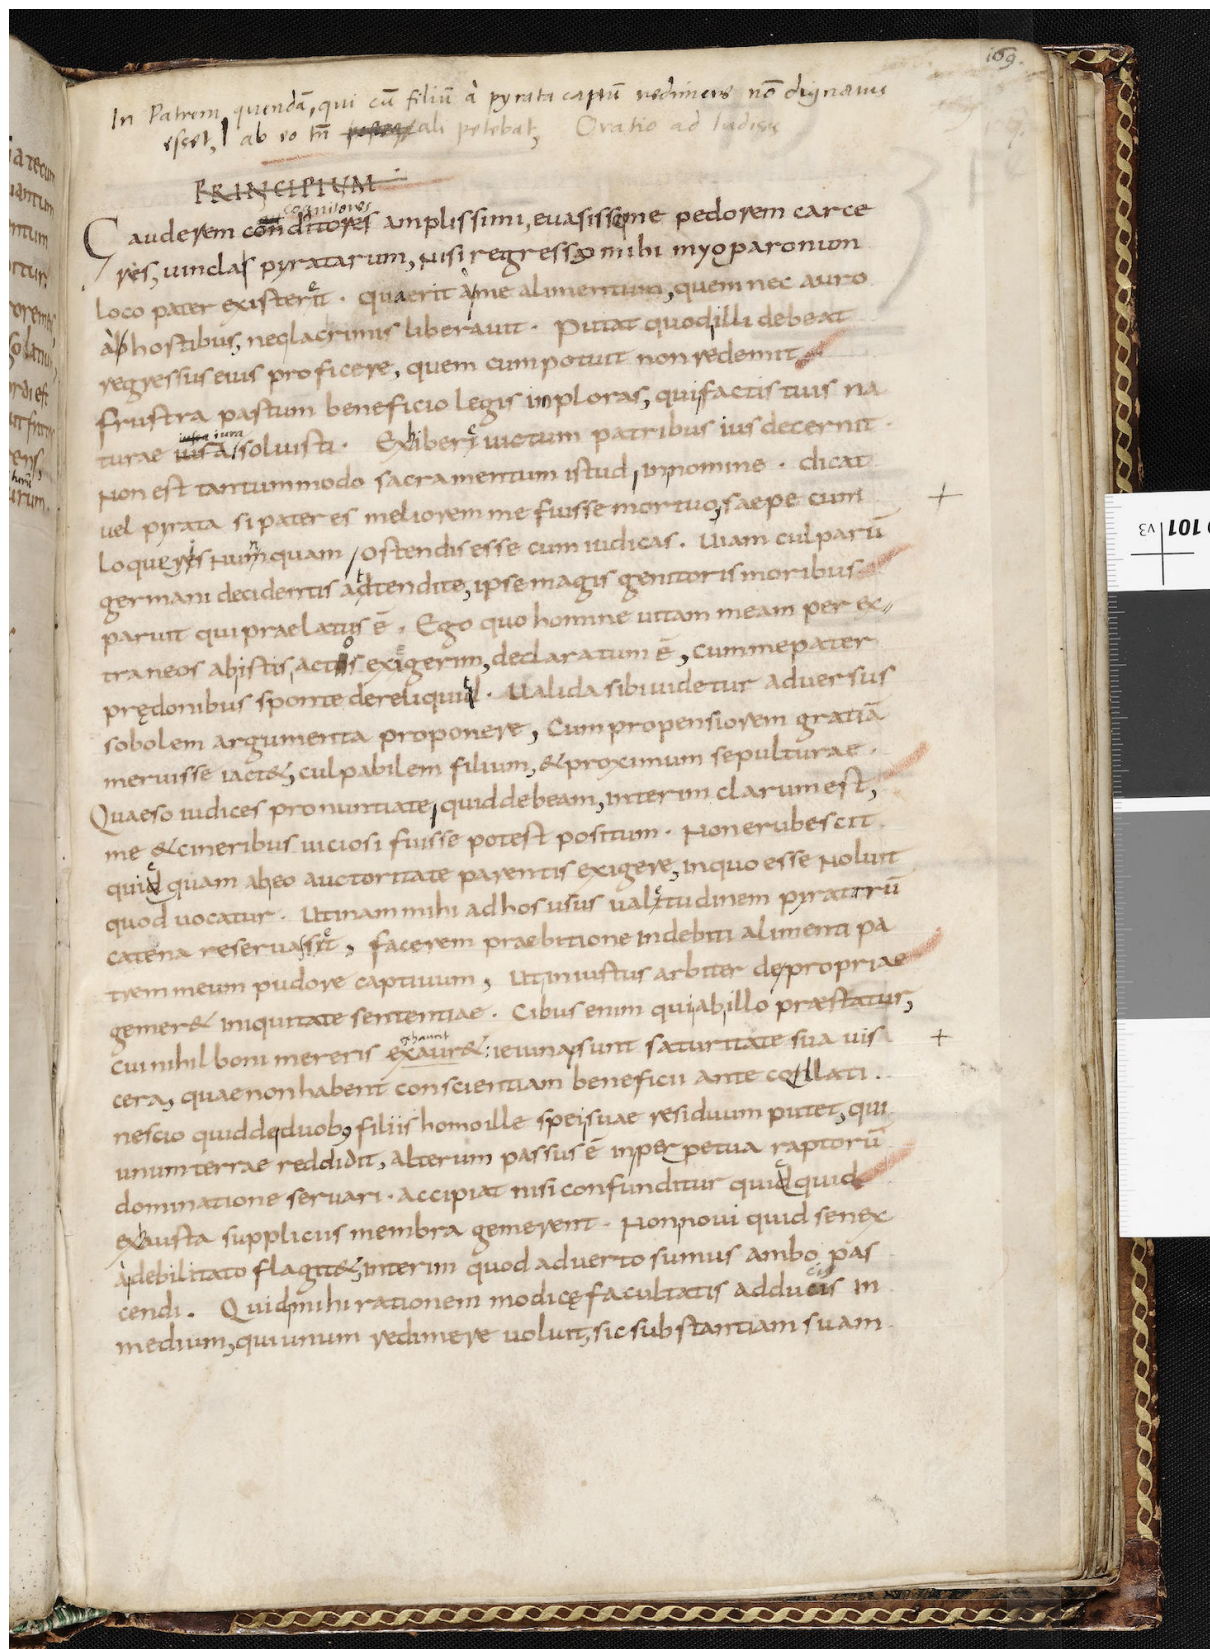 169.
In Patrem quendã, qui cũ filiũ à pyrata captũ redimere nõ dignatus
esset, ab eo tñ ali petebat, Oratio ad Iudices
PRINCIPIUM
cognitores
Gauderem conditores amplissimi, euasisse me pedorem carce
res, uincla pyratarum, Nisi regresso mihi myoparonum
loco pater existerit. quaerit à me alimentum, quem nec auro
ab hostibus, neq lacrimis liberauit. Putat quod illi debeat
regressus eius proficere, quem cum potuit non redemit
frustra pastum beneficio legis inploras, qui factis tuis na
iussa iura
turae iussa soluisti. Exiberi uictum patribus ius decernit.
Non est tantummodo sacramentum istud, in nomine. dicat
uel pyrata si pater es meliorem me fuisse mortuo, saepe cum
loqueris Numquam ostendis esse cum iudicas. Uiam culparũ
germani decidentis adtendite, ipse magis genitoris moribus
paruit qui praelatus ẽ. Ego quo homine uitam meam per ex
traneos abistis actos exigerim, declaratum ẽ, cum me pater
prędonibus sponte dereliquid. Ualida sibi uidetur aduersus
sobolem argumenta proponere, Cum propensiorem gratiã
meruisse iact&, culpabilem filium, & proximum sepulturae.
Quaeso iudices pronuntiate, quid debeam, interim clarum est,
me & cineribus uiciosi fuisse potest positum. Non erubescit
quidquam ab eo auctoritate parentis exigere, in quo esse Noluit
quod uocatur. Utinam mihi ad hos usus ualitudinem pyratarũ
catena reseruasit, facerem praebitione indebiti alimenti pa
trem meum pudore captiuum, Ut iniustus arbiter de propriae
gemer& iniquitate sententiae. Cibus enim qui ab illo præstatur,
exhaurit
cui nihil boni mereris exaur&: ieiuna sunt saturitate sua uis
cera, quae non habent conscientiam beneficii ante collati.
nescio quid dq duob; filiis homo ille spei suae residuum putet, qui
unum terrae reddidit, alterum passus ẽ in perpetua raptorũ
dominatione seruari. accipiat nisi confunditur quidquid
exausta suppliciis membra gemerent. Non noui quid senex
à debilitato flagit&, interim quod aduerto sumus ambo pas
cendi. Quid mihi rationem modicę facultatis adducis in
medium, qui unum redimere uoluit, sic substantiam suam